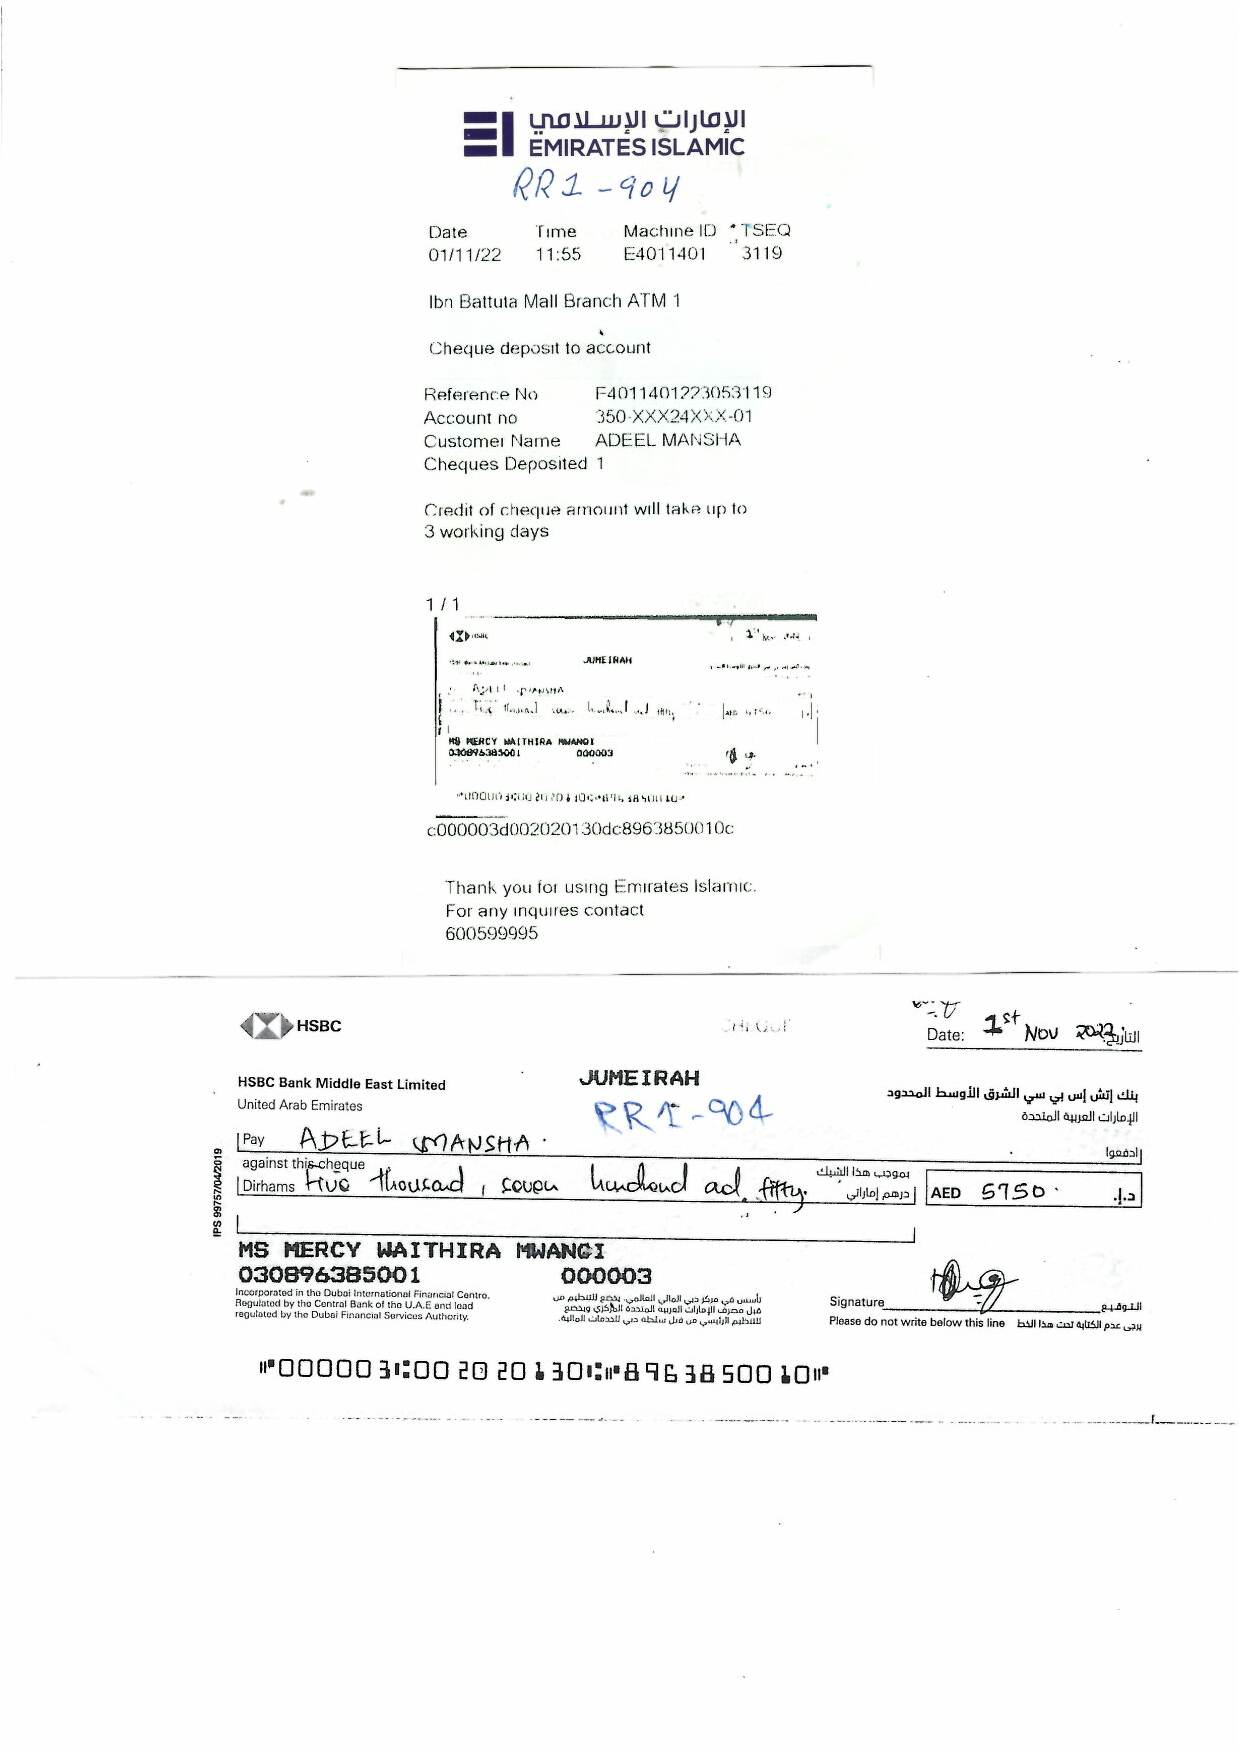 الإمارات الإسلامي
EMIRATES ISLAMIC
RR1-904
Date Time Machine ID TSEQ
01/11/22 11:55 E4011401 3119
Ibn Battuta Mall Branch ATM 1
Cheque deposit to account
Reference No F4011401223053119
Account no 350-XXX24XXX-01
Customer Name ADEEL MANSHA
Cheques Deposited 1
Credit of cheque amount will take up to
3 working days
1 / 1
JUMEIRAH
MS MERCY WAITHIRA MWANGI
030896385001 000003
c000003d002020130dc8963850010c
Thank you for using Emirates Islamic.
For any inquires contact
600599995
HSBC
Date: 1st Nov 2022 التاريخ:
HSBC Bank Middle East Limited JUMEIRAH بنك إتش إس بي سي الشرق الأوسط المحدود
United Arab Emirates RR1-904 الإمارات العربية المتحدة
Pay ADEEL MANSHA. ادفعوا
against this cheque بموجب هذا الشيك
Dirhams Five thousand, seven hundred ad fifty. درهم إماراتي AED 5750 د.إ.
IPS 99757/04/2019
MS MERCY WAITHIRA MWANGI
030896385001 000003
Incorporated in the Dubai International Financial Centre.
Regulated by the Central Bank of the U.A.E and lead
regulated by the Dubai Financial Services Authority.
تأسس في مركز دبي المالي العالمي. يخضع للتنظيم من
قبل مصرف الإمارات العربية المتحدة المركزي ويخضع
للتنظيم الرئيسي من قبل سلطة دبي للخدمات المالية.
Signature التوقيع
Please do not write below this line يرجى عدم الكتابة تحت هذا الخط
⑈000003⑆002020130⑆⑈8963850010⑈